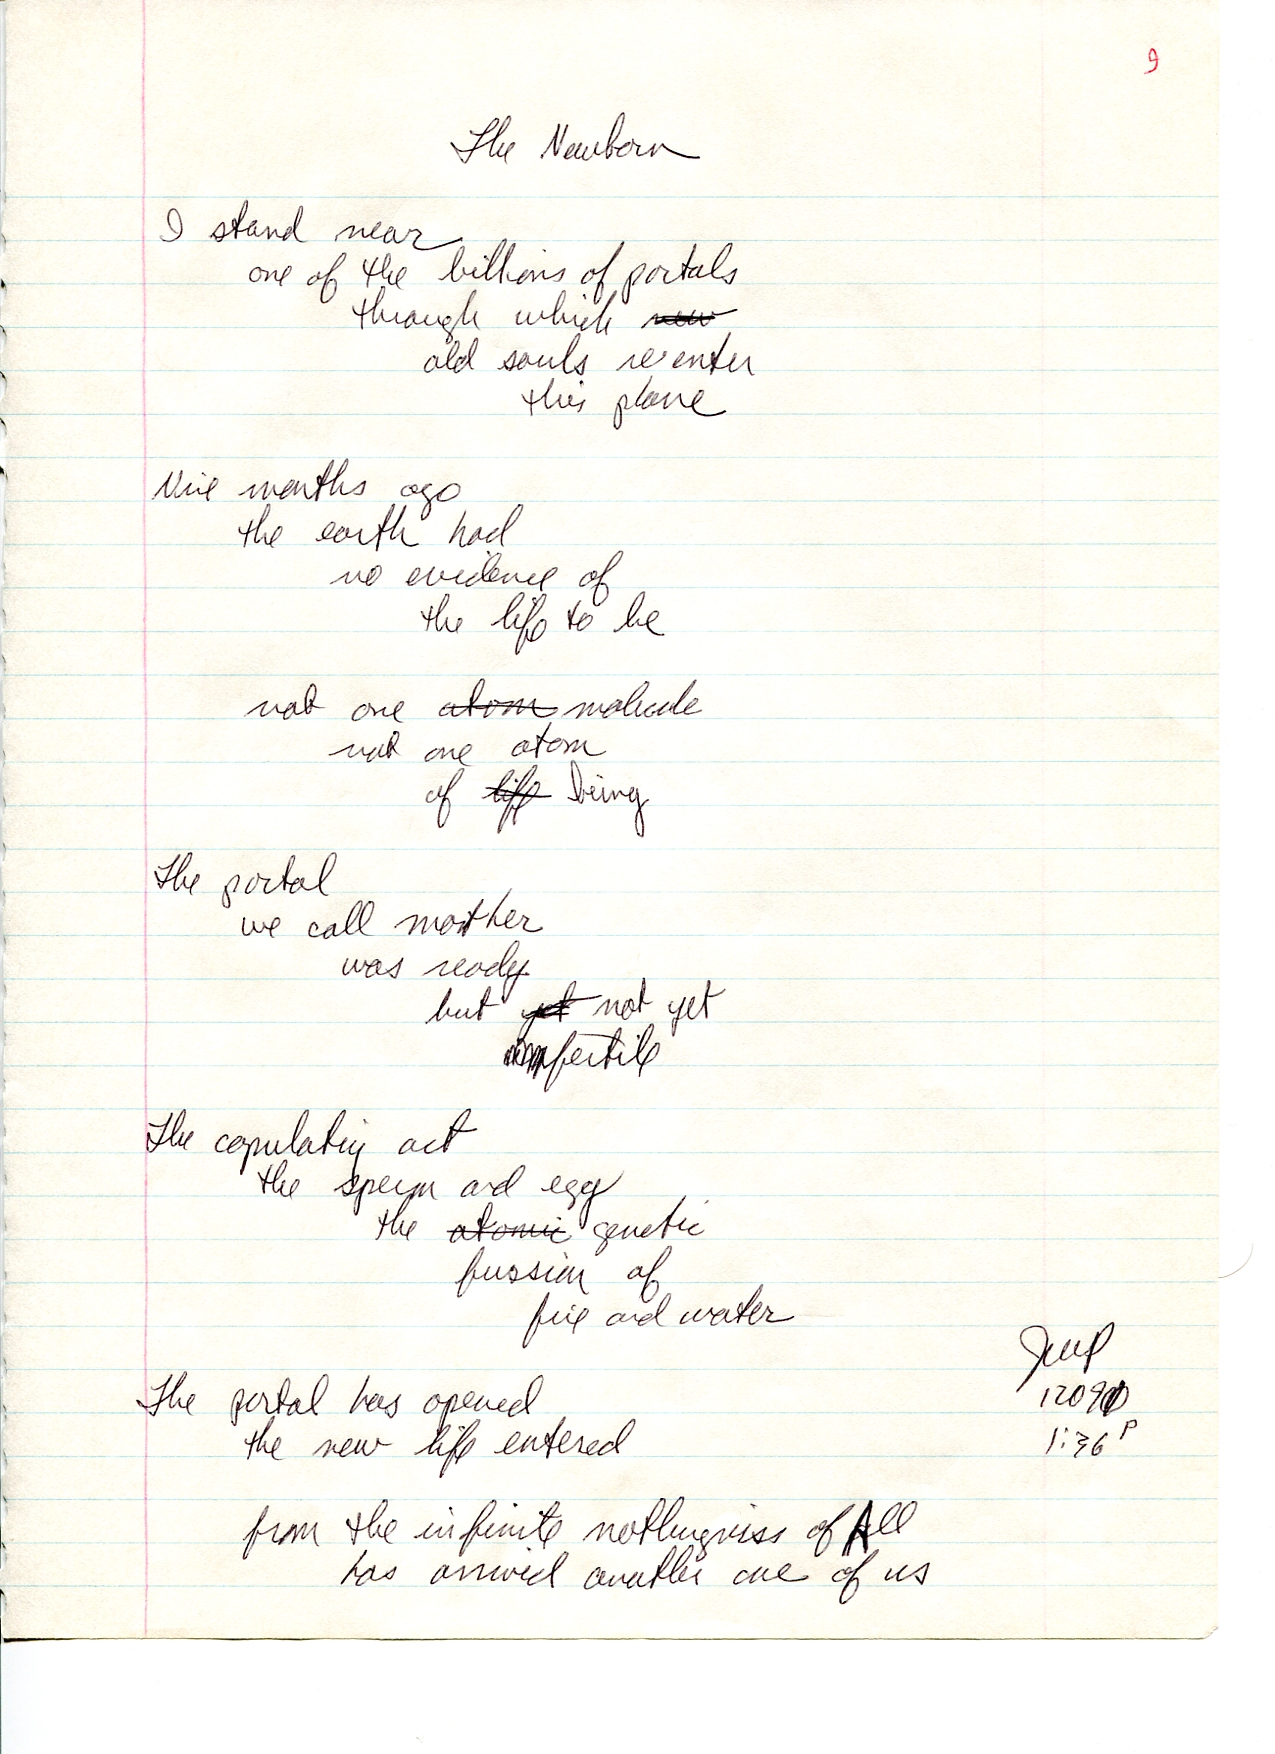 9
The Newborn
I stand near
one of the billions of portals
through which new
old souls re-enter
this plane
Nine months ago
the earth had
no evidence of
the life to be
not one atom molecule
not one atom
of life being
The portal
we call mother
was ready
but yet not yet
fertile
The copulating act
the sperm and egg
the atomic genetic
fussion of
fire and water
The portal has opened
the new life entered
from the infinite nothingness of All
has arrived another one of us
1:36 P